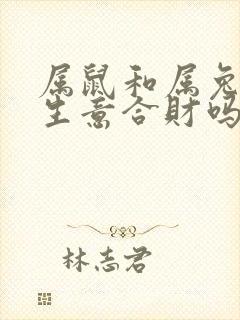 属鼠和属兔
生意合财吗
林志君